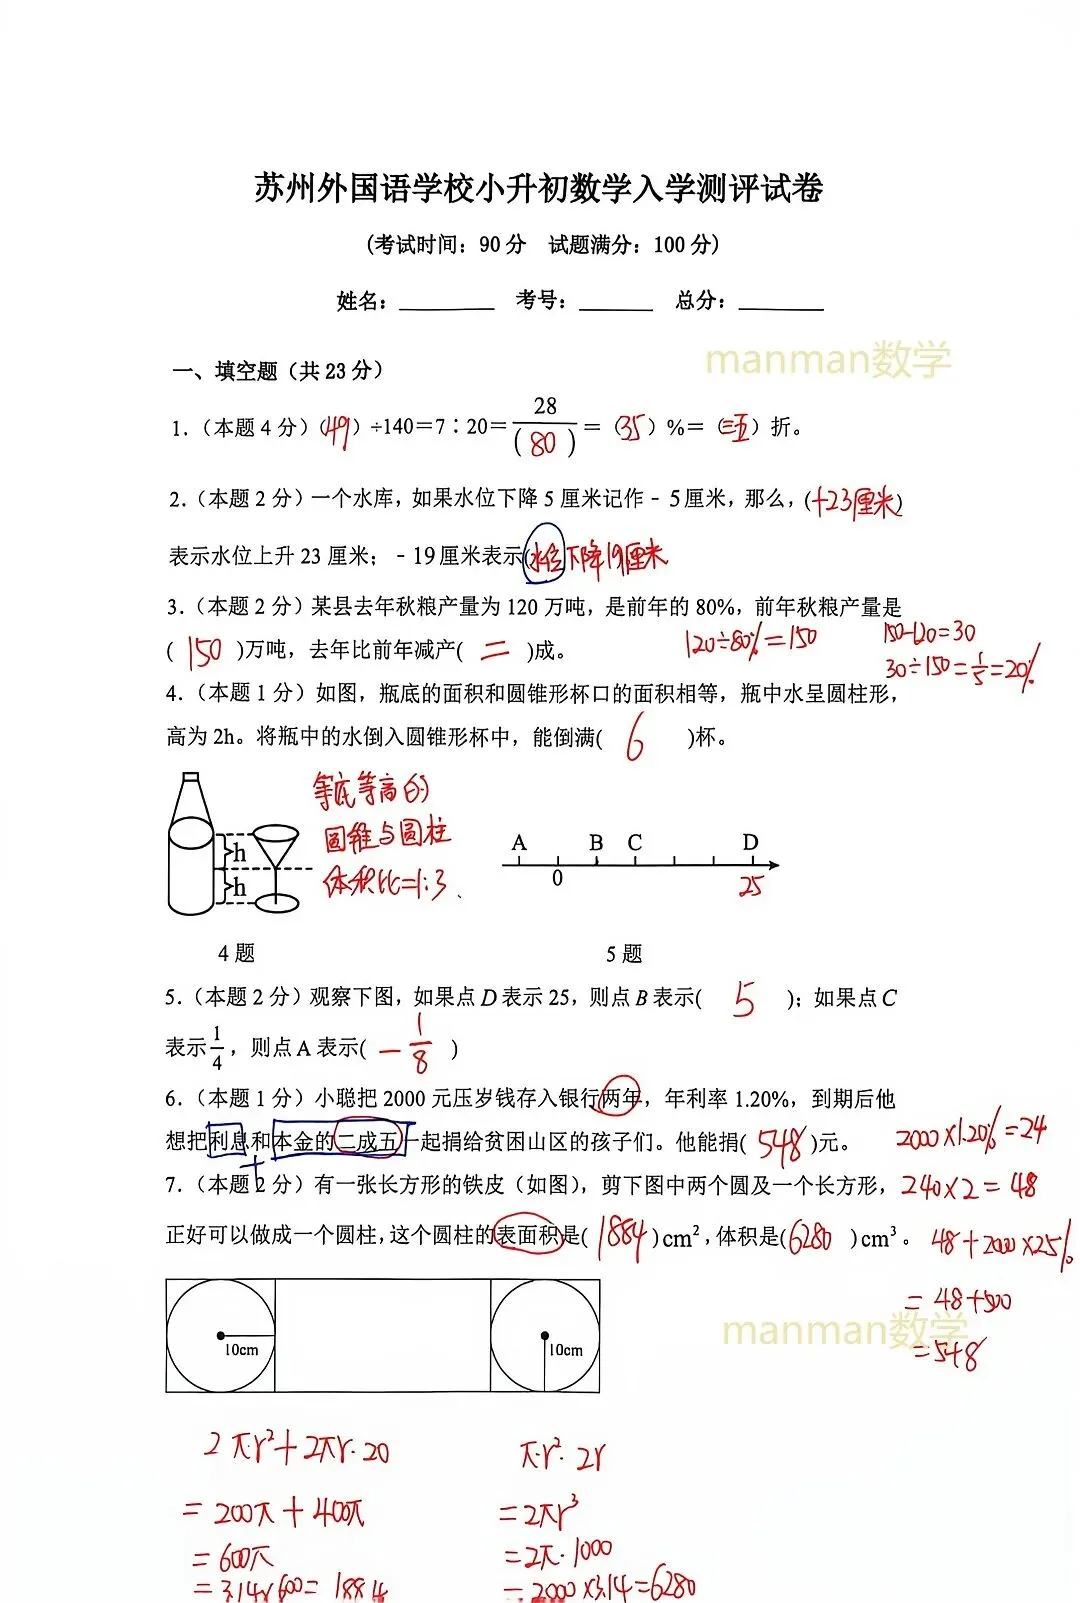 苏州外国语学校小升初数学入学测评试卷
(考试时间：90 分　试题满分：100 分)
姓名：________ 考号：________ 总分：________
manman数学
一、填空题（共 23 分）
1.（本题 4 分）(49) ÷140＝7∶20＝28/(80)＝（35）%＝（三五）折。
2.（本题 2 分）一个水库，如果水位下降 5 厘米记作﹣5 厘米，那么，(+23厘米)
表示水位上升 23 厘米；﹣19 厘米表示(水位下降19厘米
3.（本题 2 分）某县去年秋粮产量为 120 万吨，是前年的 80%，前年秋粮产量是
( 150 )万吨，去年比前年减产( 二 )成。
120÷80%=150
150-120=30
30÷150=1/5=20%
4.（本题 1 分）如图，瓶底的面积和圆锥形杯口的面积相等，瓶中水呈圆柱形，
高为 2h。将瓶中的水倒入圆锥形杯中，能倒满( 6 )杯。
h
h
等底等高的
圆锥与圆柱
体积比=1:3
A B C D
0 25
4 题
5 题
5.（本题 2 分）观察下图，如果点 D 表示 25，则点 B 表示( 5 )；如果点 C
表示 1/4，则点 A 表示( -1/8 )
6.（本题 1 分）小聪把 2000 元压岁钱存入银行两年，年利率 1.20%，到期后他
想把利息和本金的二成五一起捐给贫困山区的孩子们。他能捐( 548 )元。
+
2000×1.20%=24
240×2=48
48+2000×25%
=48+500
=548
7.（本题 2 分）有一张长方形的铁皮（如图），剪下图中两个圆及一个长方形，
正好可以做成一个圆柱，这个圆柱的表面积是( 1884 )cm²，体积是(6280 )cm³。
manman数学
10cm
10cm
2π·r²+2πr·20
=200π+400π
=600π
=3.14×600=1884
π·r²·2r
=2πr³
=2π·1000
=2000×3.14=6280